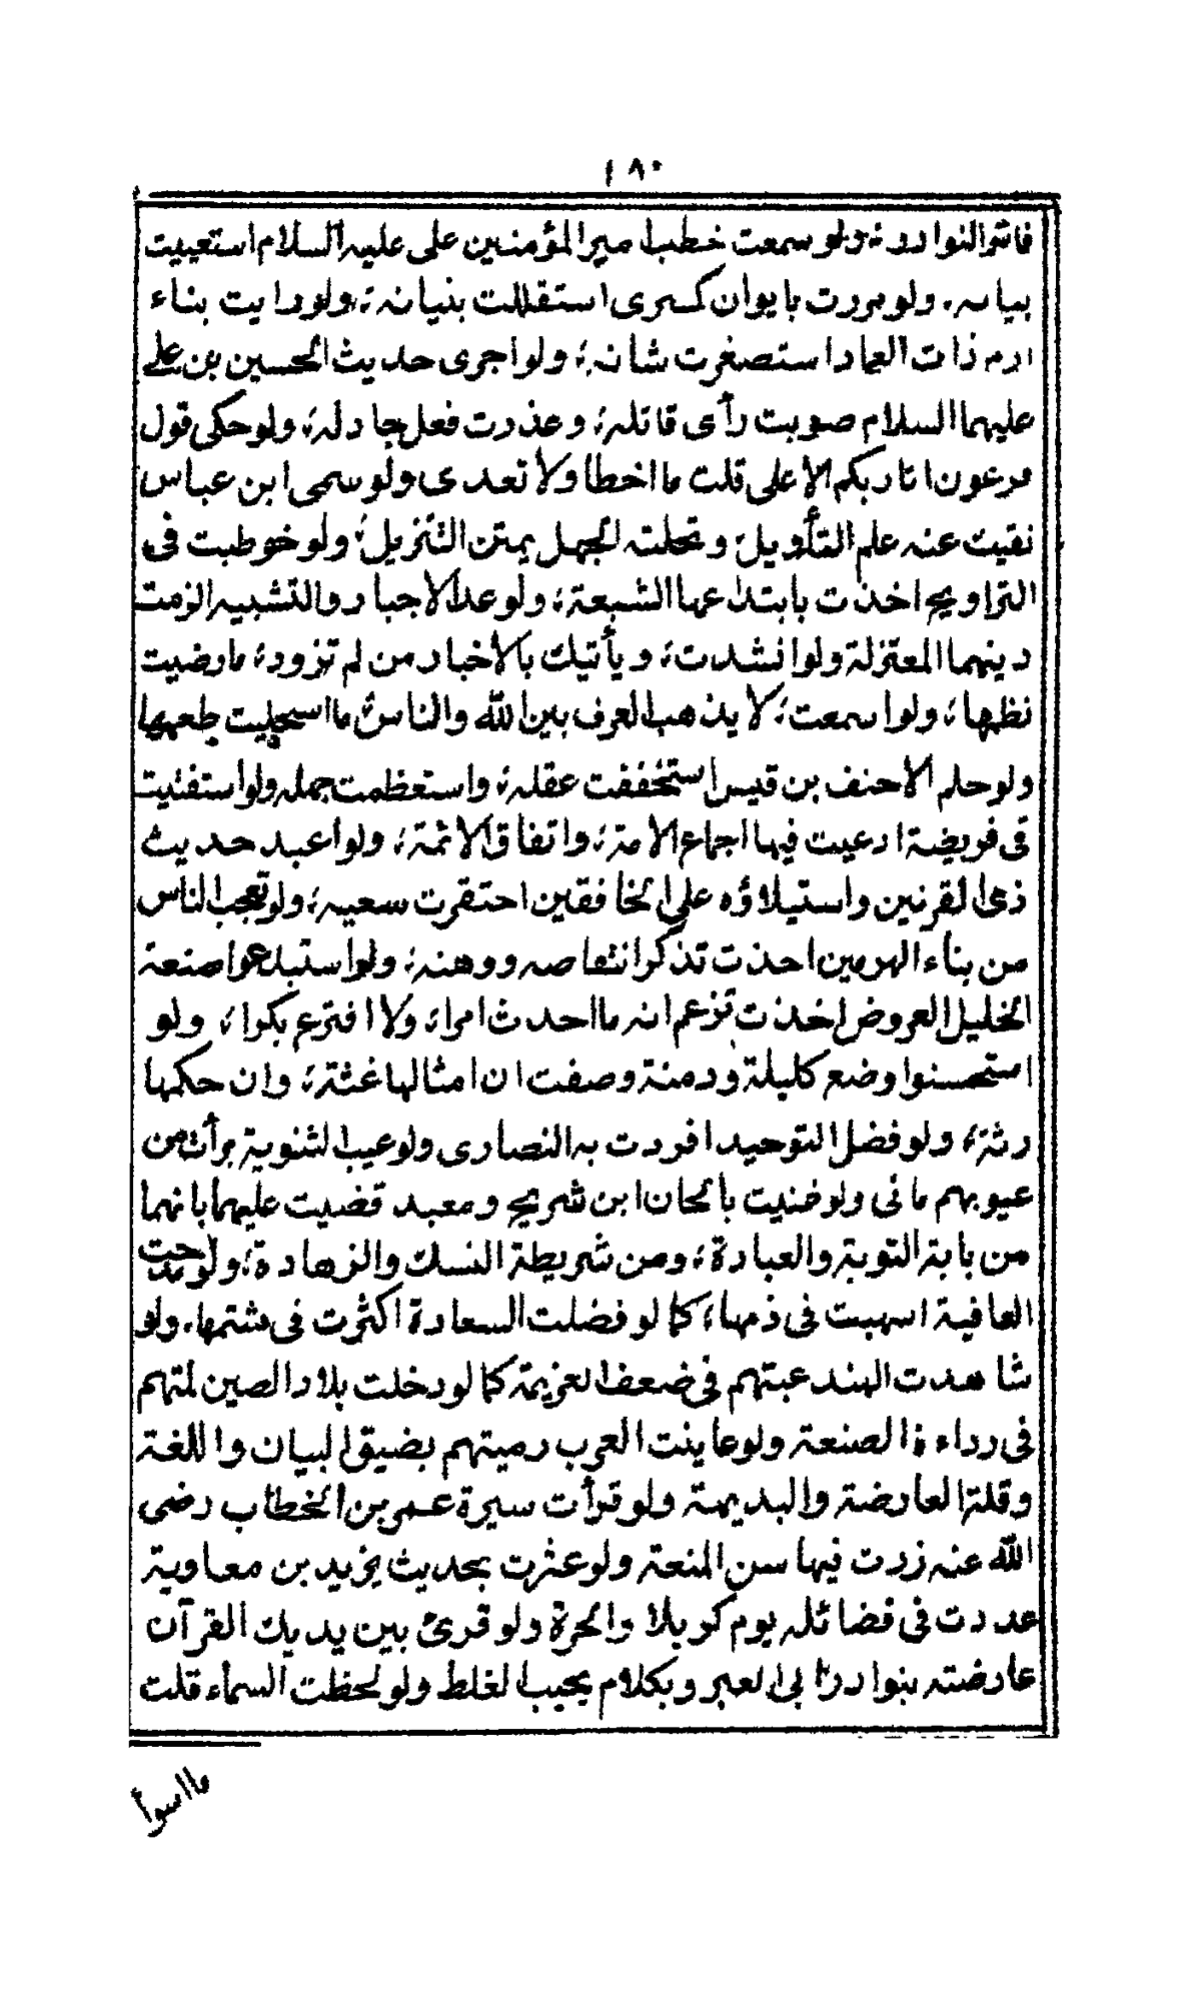 ١٨٠
فاتر النوادر ولو سمعت خطب امير المؤمنين على عليه السلام استعييت
بيانه، ولو مررت بايوان كسرى استقللت بنيانه، ولو رايت بناء
ارم ذات العماد استصغرت شانه، ولو اجرى حديث الحسين بن على
عليهما السلام صوبت رأى قاتله، وعذرت فعل جادله، ولو حكى قول
فرعون انا ربكم الاعلى قلت ما اخطا ولا تعدى ولو سمى ابن عباس
نفيت عنه علم التأويل ونحلته الجهل بمتن التنزيل، ولو خوطبت فى
التراويح اخذت بابتداعها الشيعة، ولو عد الاجبار والتشبيه الزمت
دينهما المعتزلة ولو انشدت، ويأتيك بالأخبار من لم تزود، ما رضيت
نظمها، ولو اسمعت، لا يذهب العرف بين الله والناس، ما استحليت طعمها
ولو حلم الاحنف بن قيس استخففت عقله، واستعظمت جهله ولو استفتيت
فى فريضة ادعيت فيها اجماع الامة، واتفاق الائمة، ولو اعيد حديث
ذى القرنين واستيلاؤه على الخافقين احتقرت سعيه، ولو تعجب الناس
من بناء الهرمين اخذت تذكر انتقاصه ووهنه، ولو استبدعوا صنعة
الخليل العروض اخذت تزعم انه ما احدث امرا، ولا افترع بكرا، ولو
استحسنوا وضع كليلة ودمنة وصفت ان امثالها غثة، وان حكمها
رثة، ولو فضل التوحيد افردت به النصارى ولو عيب الثنوية برأت من
عيوبهم مانى ولو غنيت بالحان ابن شريح ومعبد قضيت عليهما بانهما
من بابة التوبة والعبادة، ومن شريطة النسك والزهادة، ولو مدحت
العافية اسهبت فى ذمها، كما لو فضلت السعادة اكثرت فى شتمها، ولو
شاهدت الهند عبتهم فى ضعف العزيمة كما لو دخلت بلاد الصين لمتهم
فى رداءة الصنعة ولو عاينت العرب رميتهم بضيق البيان واللغة
وقلة العارضة والبديهة ولو قرأت سيرة عمر بن الخطاب رضى
الله عنه زدت فيها سن المنعة ولو عثرت بحديث يزيد بن معاوية
عددت فى فضائله يوم كربلا والحرة ولو قرئ بين يديك القرآن
عارضته بنوادر ابى العبر وبكلام يحيب الغلط ولو لحظت السماء قلت
ما اسوأ